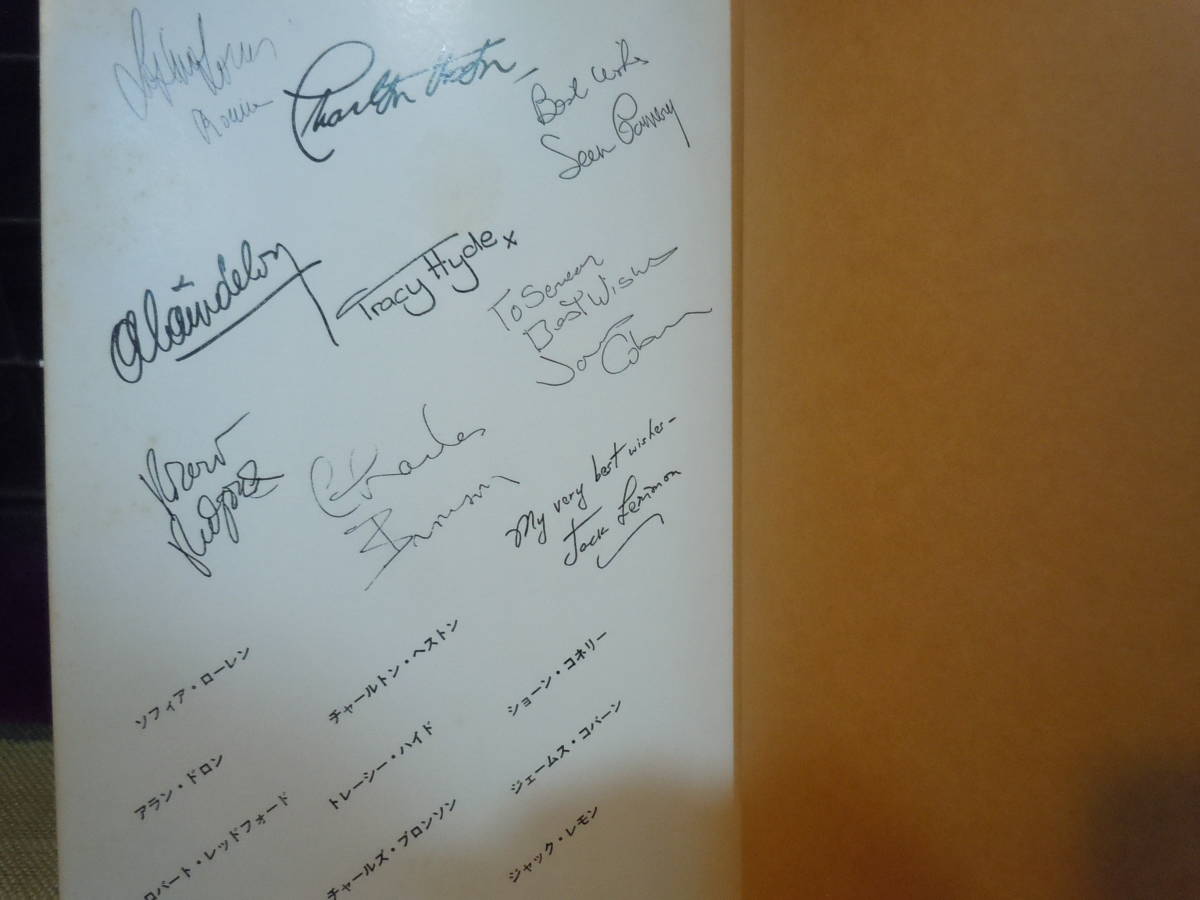 Charlton Heston
Best Wishes
Sean Connery
Alain Delon
Tracy Hyde x
To Screen
Best Wishes
James
Coburn
Robert
Redford
Charles
Bronson
My very best wishes-
Jack Lemmon
ソフィア・ローレン
チャールトン・ヘストン
ショーン・コネリー
アラン・ドロン
トレーシー・ハイド
ジェームス・コバーン
ロバート・レッドフォード
チャールズ・ブロンソン
ジャック・レモン